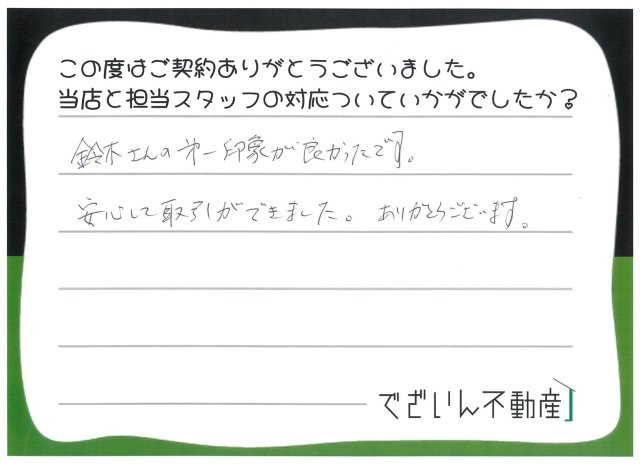 この度はご契約ありがとうございました。
当店と担当スタッフの対応ついていかがでしたか?
鈴木さんの第一印象が良かったです。
安心して取引ができました。 ありがとうございます。
でざいん不動産